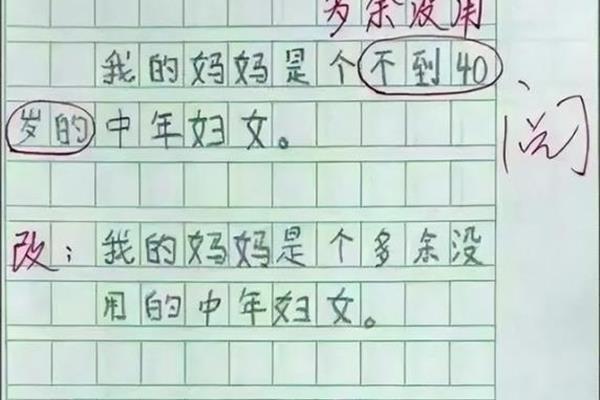 多余没用
我的妈妈是个不到40
岁的中年妇女。
阅
改：我的妈妈是个多余没
用的中年妇女。